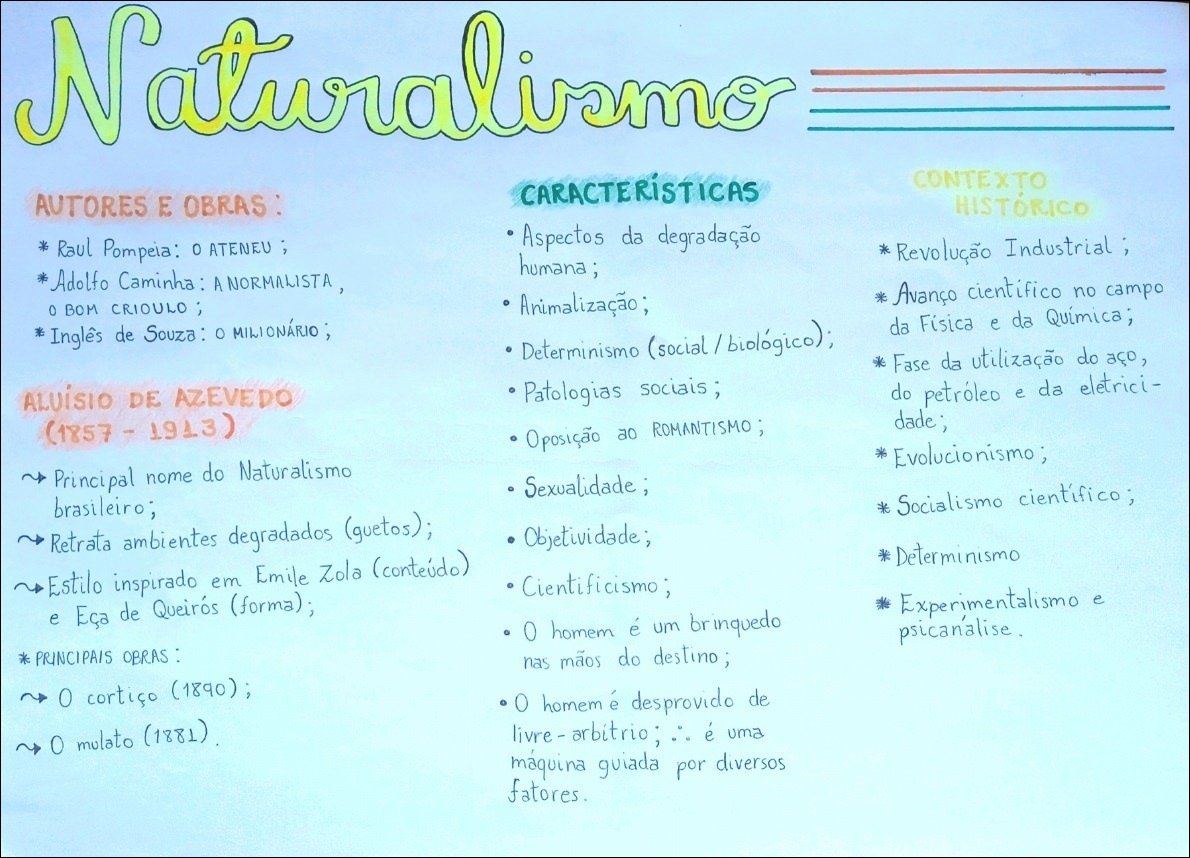 Naturalismo
AUTORES E OBRAS:
* Raul Pompeia: O ATENEU;
* Adolfo Caminha: A NORMALISTA,
O BOM CRIOULO;
* Inglês de Souza: O MILIONÁRIO;
ALUÍSIO DE AZEVEDO
(1857 - 1913)
↝ Principal nome do Naturalismo
brasileiro;
↝ Retrata ambientes degradados (guetos);
↝ Estilo inspirado em Emile Zola (conteúdo)
e Eça de Queirós (forma);
* PRINCIPAIS OBRAS:
↝ O cortiço (1890);
↝ O mulato (1881).
CARACTERÍSTICAS
• Aspectos da degradação
humana;
• Animalização;
• Determinismo (social/biológico);
• Patologias sociais;
• Oposição ao ROMANTISMO;
• Sexualidade;
• Objetividade;
• Cientificismo;
• O homem é um brinquedo
nas mãos do destino;
• O homem é desprovido de
livre-arbítrio; ∴ é uma
máquina guiada por diversos
fatores.
CONTEXTO
HISTÓRICO
* Revolução Industrial;
* Avanço científico no campo
da Física e da Química;
* Fase da utilização do aço,
do petróleo e da eletrici-
dade;
* Evolucionismo;
* Socialismo científico;
* Determinismo
* Experimentalismo e
psicanálise.